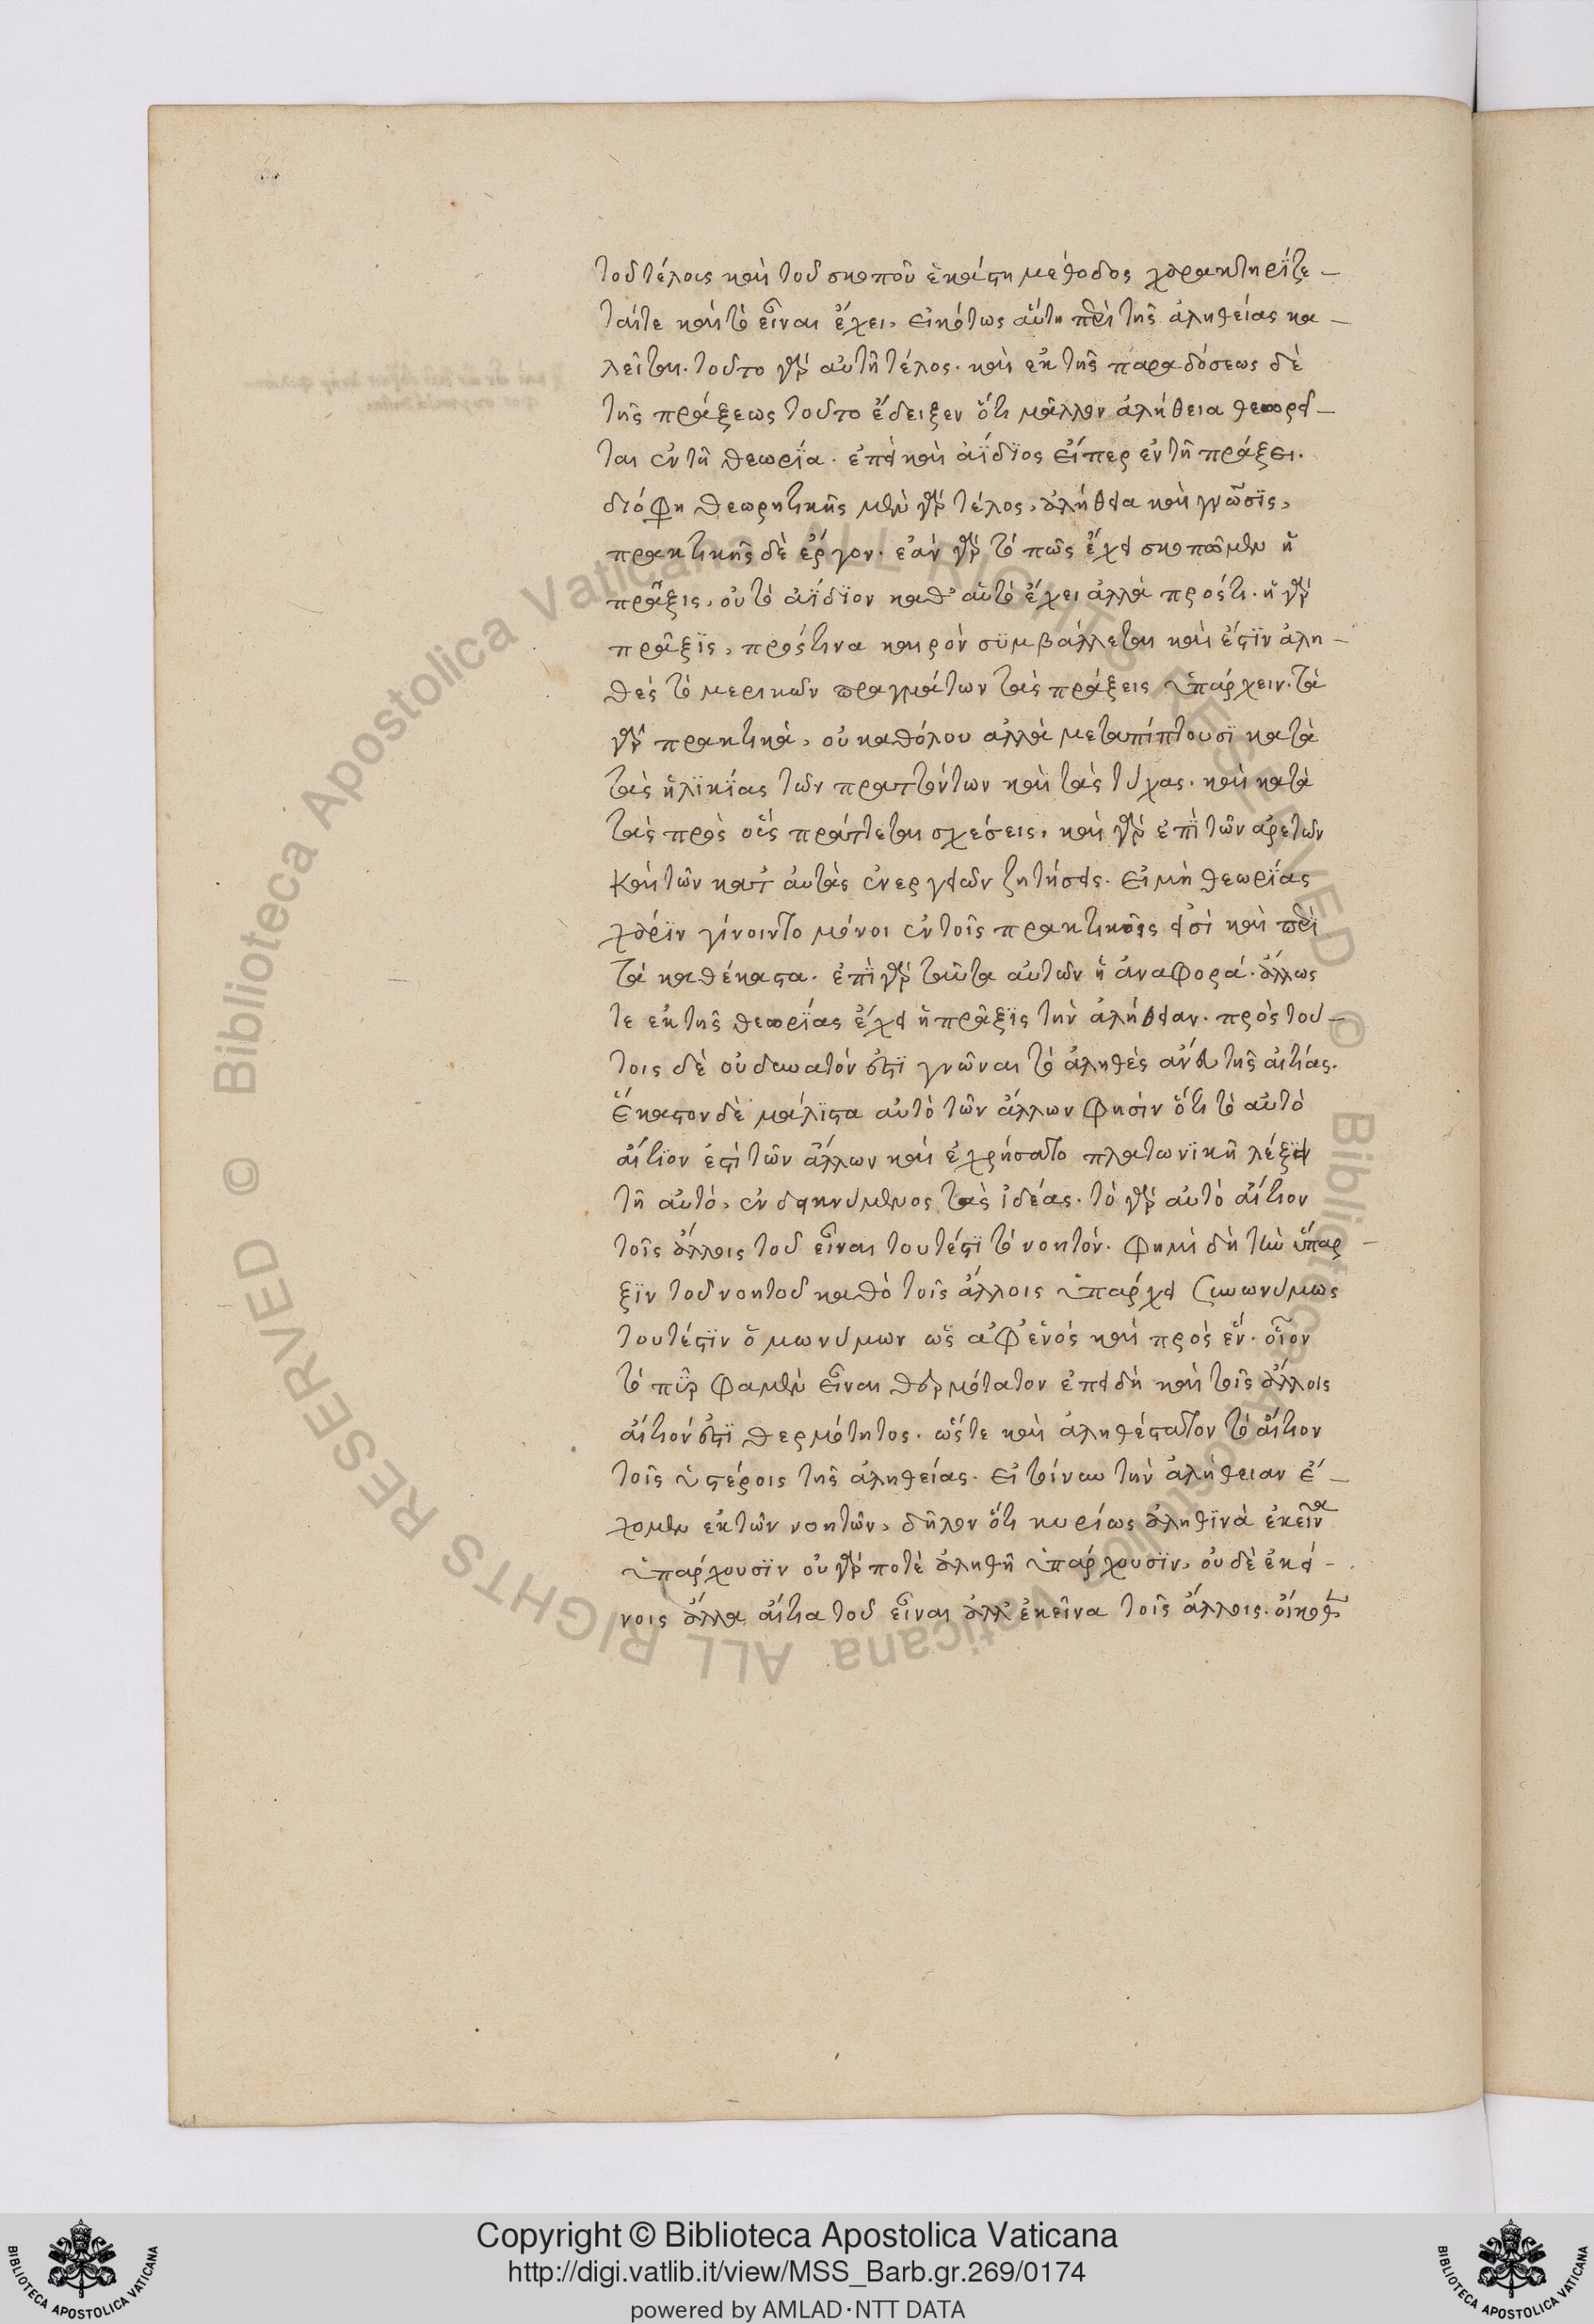 τοῦ τέλους καὶ τοῦ σκοποῦ ἑκάστη μέθοδος χαρακτηρίζε-
ταί τε καὶ τὸ εἶναι ἔχει, εἰκότως αὕτη περὶ τῆς ἀληθείας κα-
λεῖται. τοῦτο γὰρ αὐτῆ τέλος. καὶ ἐκ τῆς παραδόσεως δὲ
τῆς πράξεως τοῦτο ἔδειξεν ὅτι μᾶλλον ἀλήθεια θεωρεῖ-
ται ἐν τῆ θεωρΐα. ἐπεὶ καὶ ἀΐδϊος εἴπερ ἐν τῆ πράξει.
διό φη θεωρητικῆς μὲν γὰρ τέλος, ἀλήθεια καὶ γνῶσϊς,
πρακτικῆς δὲ ἔργον. ἐὰν γὰρ τὸ πῶς ἔχει σκοπῶμεν ἡ
πρᾶξις, οὐ τὸ ἀΐδϊον καθ' αὑτὸ ἔχει ἀλλὰ πρός τι. ἡ γὰρ
πρᾶξϊς, πρός τινα καιρὸν σϋμβάλλεται καὶ ἔστϊν ἀλη-
θὲς τὸ μερικῶν πραγμάτων τὰς πράξεις ὑπάρχειν. τὰ
γὰρ πρακτικὰ, οὐ καθόλου ἀλλὰ μεταπίπτουσϊ κατὰ
τὰς ἡλϊκΐας τῶν πραττόντων καὶ τὰς τύχας. καὶ κατὰ
τὰς πρὸς οὓς πράττεται σχέσεις. καὶ γὰρ ἐπῒ τῶν ἀρετῶν
καὶ τῶν κατ' αὐτὰς ἐνεργειῶν ζητήσεις. εἰ μὴ θεωρΐας
χάρϊν γίνοιντο μόνοι ἐν τοῖς πρακτικοῖς εἰσὶ καὶ περὶ
τὰ καθέκαστα. ἐπῒ γὰρ ταῦτα αὐτῶν ἡ ἀναφορά. ἄλλως
τε ἐκ τῆς θεωρΐας ἔχει ἡ πρᾶξϊς τὴν ἀλήθειαν. πρὸς τού-
τοις δὲ οὐ δυνατόν ἐστϊ γνῶναι τὸ ἀληθὲς ἄνευ τῆς αἰτίας.
ἕκαστον δὲ μάλϊστα αὐτὸ τῶν ἄλλων φησὶν ὅτι τὸ αὐτὸ
αἴτϊον ἐστὶ τῶν ἄλλων καὶ ἐχρήσατο πλατωνϊκῆ λέξϊει
τῆ αὐτὸ, ἐνδεικνύμενος τὰς ἰδέας. τὸ γὰρ αὐτὸ αἴτιον
τοῖς ἄλλοις τοῦ εἶναι τουτέστϊ τὸ νοητόν. φημὶ δὴ τὴν ὕπαρ-
ξϊν τοῦ νοητοῦ καθὸ τοῖς ἄλλοις ὑπάρχει συνωνύμως
τουτέστϊν ὁμωνύμων ὡς ἀφ' ἑνὸς καὶ πρὸς ἕν. οἷον
τὸ πῦρ φαμὲν εἶναι θερμότατον ἐπειδὴ καὶ τοῖς ἄλλοις
αἴτιόν ἐστϊ θερμότητος. ὥστε καὶ ἀληθέστατον τὸ αἴτιον
τοῖς ὑστέροις τῆς ἀληθείας. εἰ τοίνυν τὴν ἀλήθειαν ἔ-
χομεν ἐκ τῶν νοητῶν, δῆλον ὅτι κυρίως ἀληθϊνὰ ἐκεῖνα
ὑπάρχουσϊν οὐ γάρ ποτὲ ἀληθῆ ὑπάρχουσϊν, οὐδὲ ἐκεί-
νοις ἄλλα αἴτια τοῦ εἶναι ἀλλ' ἐκεῖνα τοῖς ἄλλοις.
© Biblioteca Apostolica Vaticana ALL RIGHTS RESERVED © Biblioteca Apostolica Vaticana ALL RIGHTS RESERVED
BIBLIOTECA APOSTOLICA VATICANA
Copyright © Biblioteca Apostolica Vaticana
http://digi.vatlib.it/view/MSS_Barb.gr.269/0174
powered by AMLAD·NTT DATA
BIBLIOTECA APOSTOLICA VATICANA